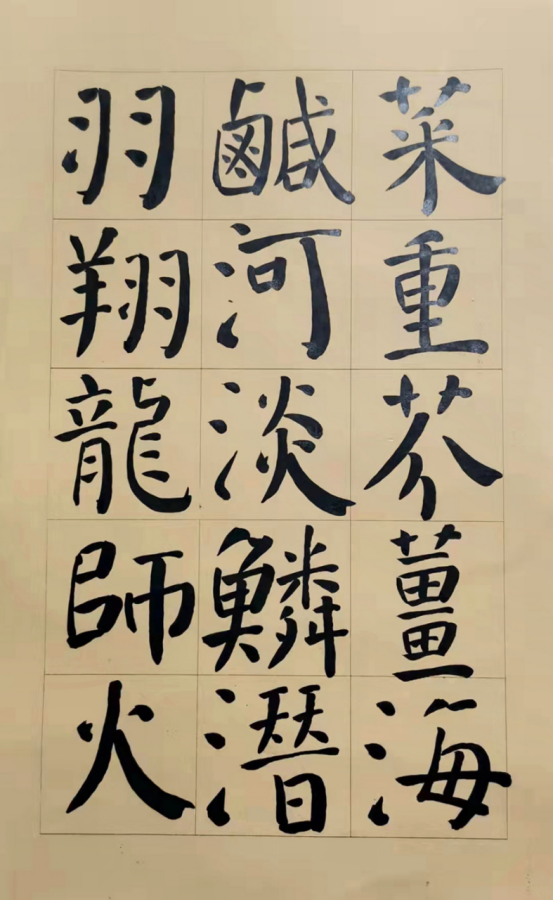 菜重芥薑海
鹹河淡鱗潛
羽翔龍師火